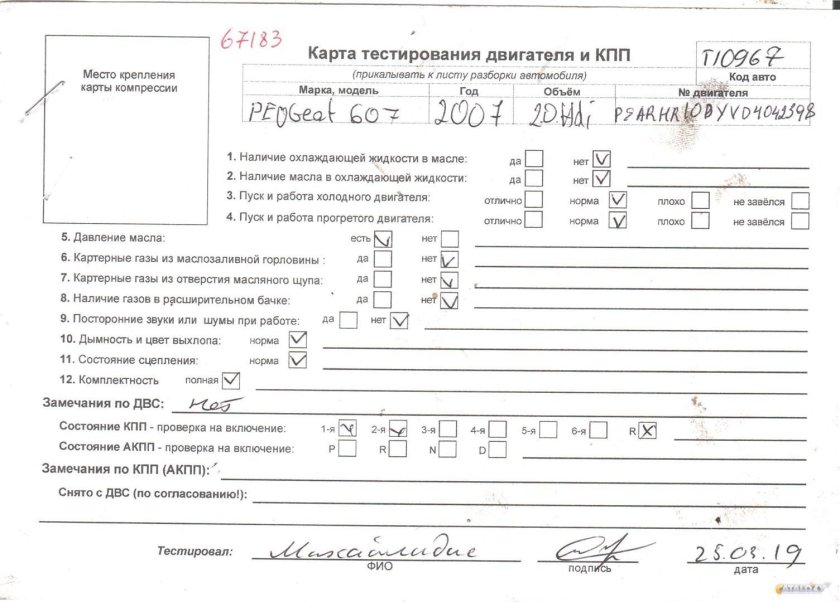 67183
Карта тестирования двигателя и КПП
(прикалывать к листу разборки автомобиля)
T10967
Код авто
Место крепления
карты компрессии
Марка, модель Год Объём № двигателя
PEOGeot 607 2007 2.0Hdi PSARHR10DYVD4042398
1. Наличие охлаждающей жидкости в масле: да нет
2. Наличие масла в охлаждающей жидкости: да нет
3. Пуск и работа холодного двигателя: отлично норма плохо не завёлся
4. Пуск и работа прогретого двигателя: отлично норма плохо не завёлся
5. Давление масла: есть нет
6. Картерные газы из маслозаливной горловины : да нет
7. Картерные газы из отверстия масляного щупа: да нет
8. Наличие газов в расширительном бачке: да нет
9. Посторонние звуки или шумы при работе: да нет
10. Дымность и цвет выхлопа: норма
11. Состояние сцепления: норма
12. Комплектность полная
Замечания по ДВС: нет
Состояние КПП - проверка на включение: 1-я 2-я 3-я 4-я 5-я 6-я R
Состояние АКПП - проверка на включение: P R N D
Замечания по КПП (АКПП):
Снято с ДВС (по согласованию!):
Тестировал: Михайлидис 25.03.19
ФИО подпись дата